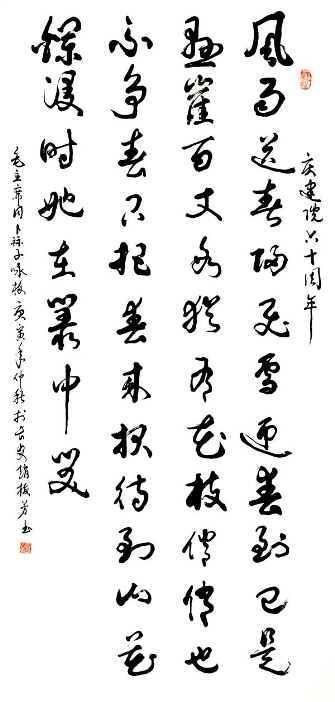 庆建院六十周年
风雨送春归飞雪迎春到已是
悬崖百丈冰犹有花枝俏俏也
不争春只把春来报待到山花
烂漫时她在丛中笑
毛主席词卜算子咏梅庚寅年仲秋于长安梅芳书